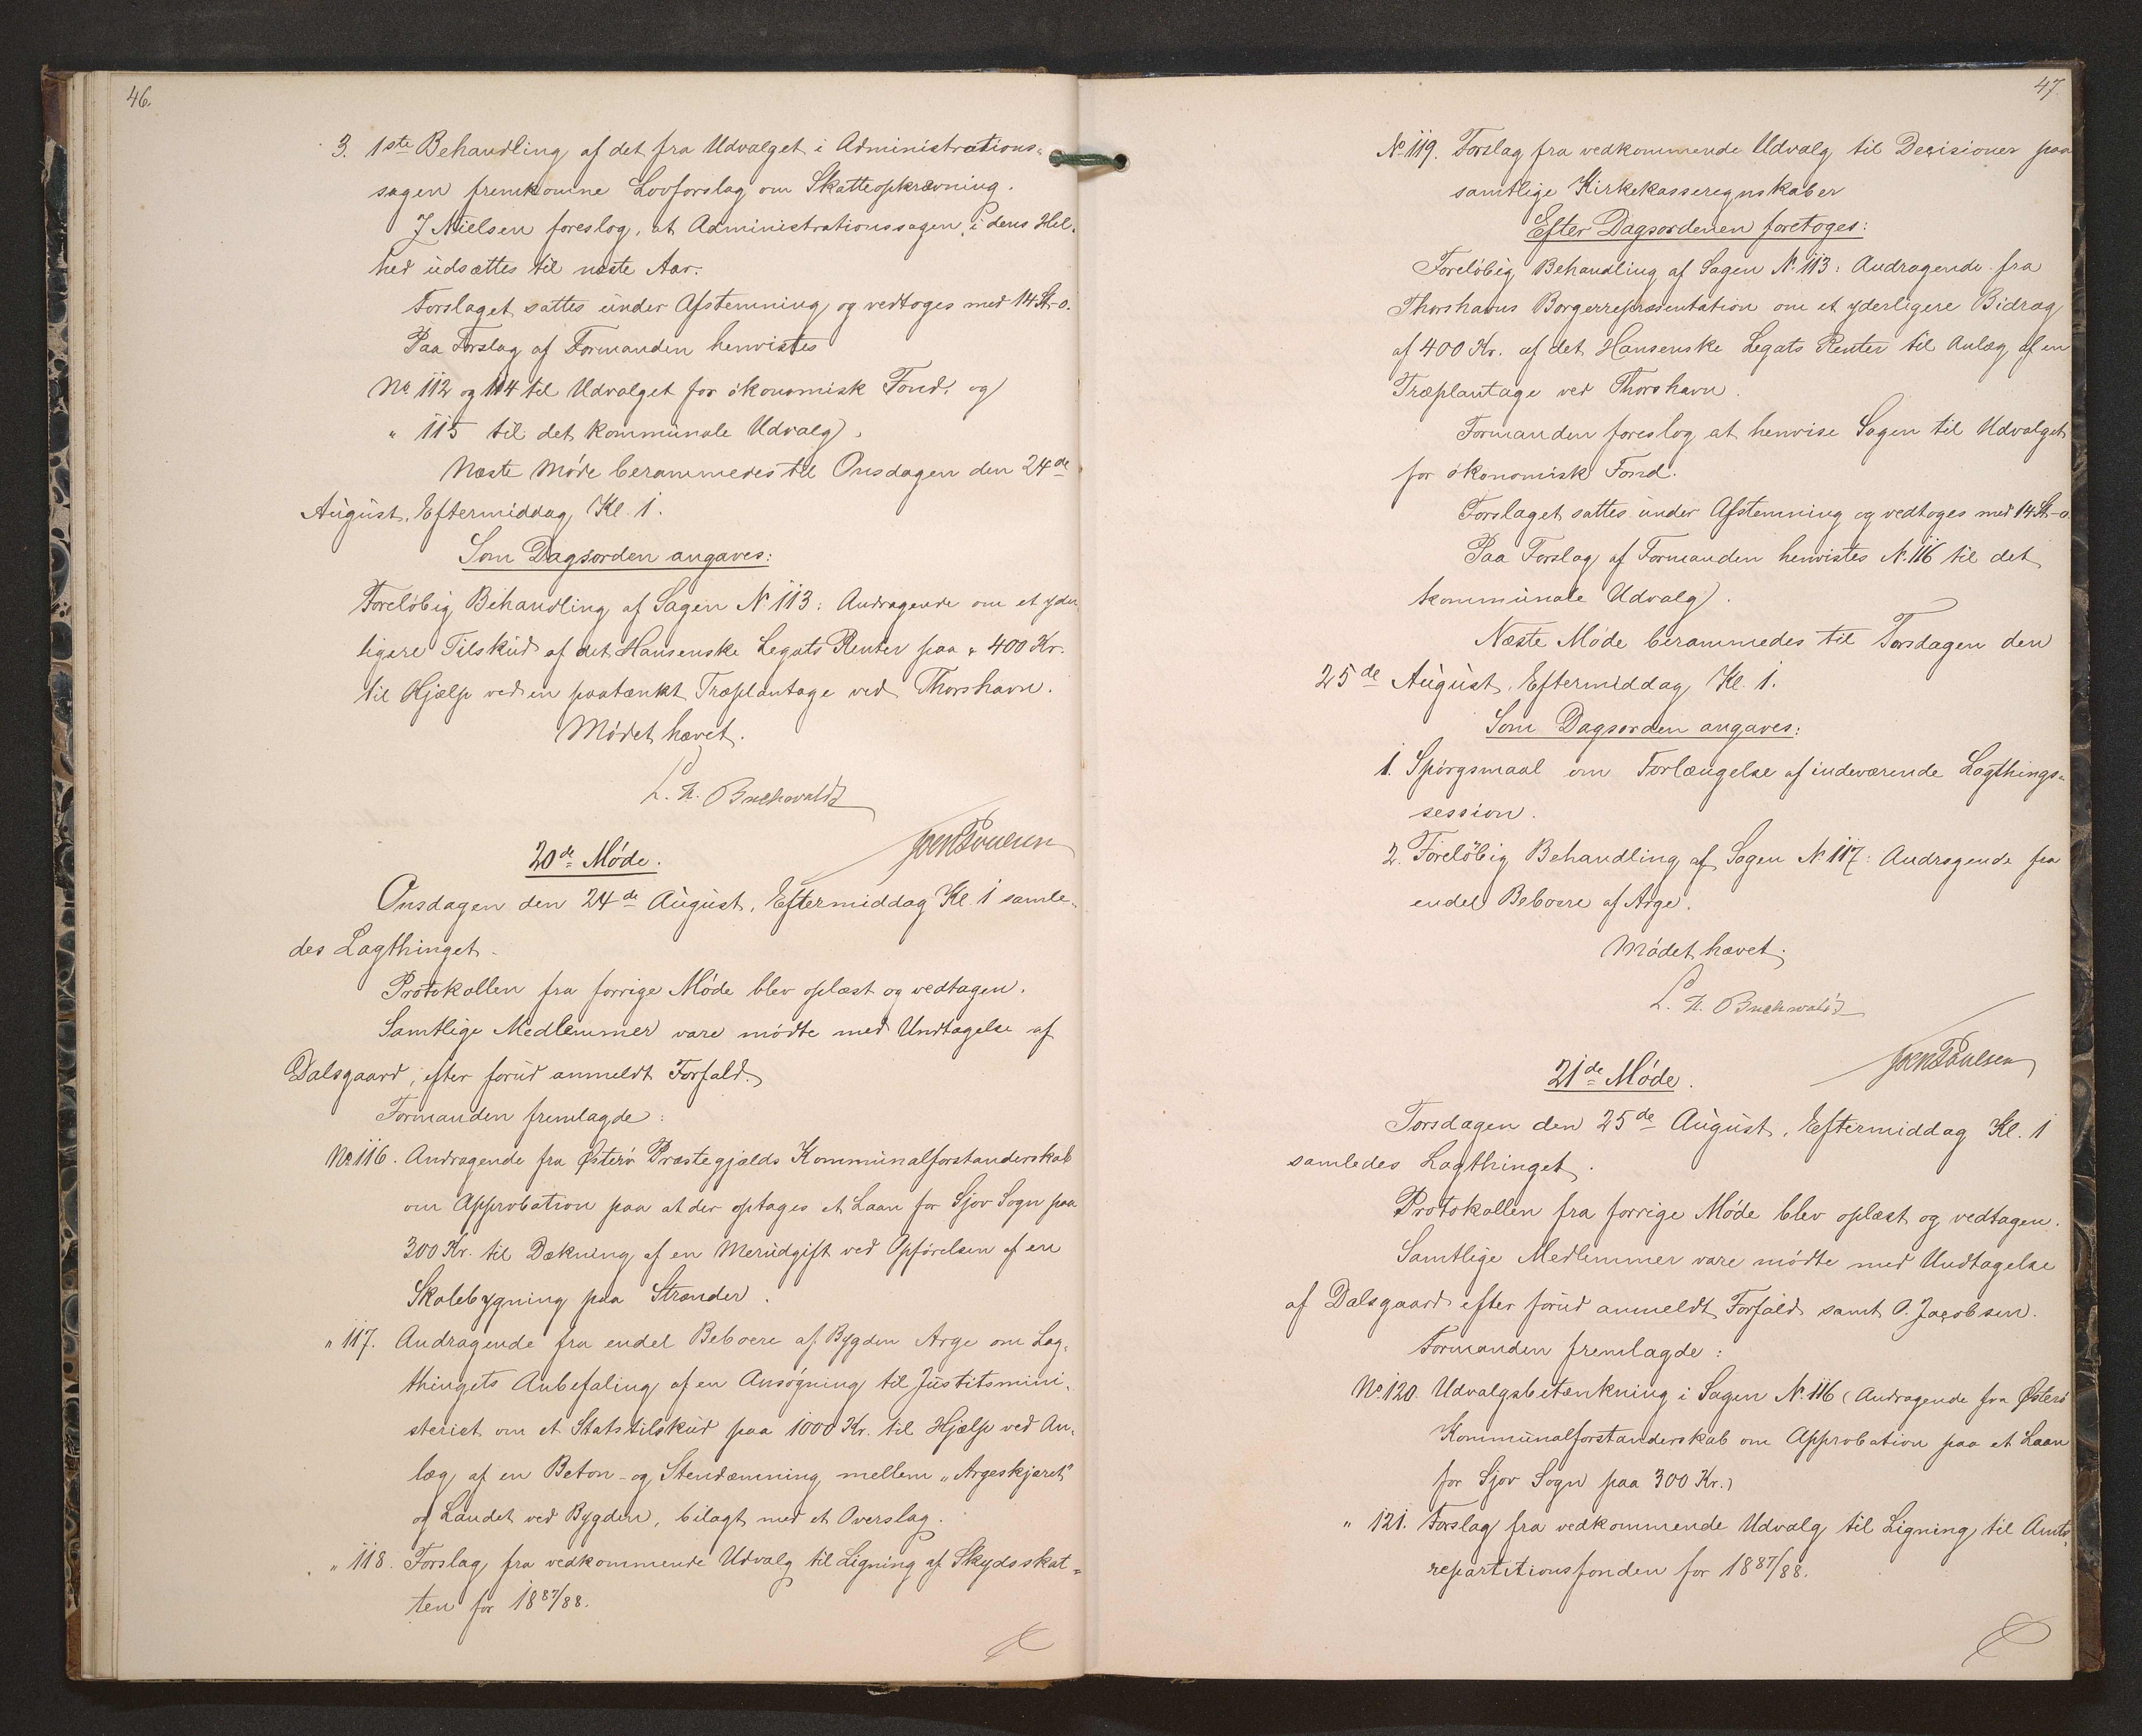 46.
3. 1ste Behandling af det fra Udvalget i Administrations-
sagen fremkomne Lovforslag om Skatteopkrævning.
J Nielsen foreslog, at Administrationssagen i dens Hel-
hed udsættes til næste Aar.
Forslaget sattes under Afstemning og vedtoges med 14 St-0.
Paa Forslag af Formanden henvistes
No 112 og 114 til Udvalget for økonomisk Fond, og
" 115 til det kommunale Udvalg.
Næste Møde berammedes til Onsdagen den 24de
August, Eftermiddag Kl. 1.
Som Dagsorden angaves:
Foreløbig Behandling af Sagen No 113: Andragende om et yder-
ligere Tilskud af det Hansenske Legats Renter paa 400 Kr.
til Hjælp ved en paatænkt Træplantage ved Thorshavn.
Mødet hævet.
L. H. Buchwaldt
Joen Poulsen
20de Møde.
Onsdagen den 24de August, Eftermiddag Kl. 1 samle-
des Lagthinget.
Protokollen fra forrige Møde blev oplæst og vedtagen.
Samtlige Medlemmer vare mødte med Undtagelse af
Dalsgaard, efter forud anmeldt Forfald.
Formanden fremlagde:
No 116. Andragende fra Østerø Præstegjælds Kommunalforstanderskab
om Approbation paa at der optages et Laan for Sjov Sogn paa
300 Kr. til Dækning af en Merudgift ved Opførelsen af en
Skolebygning paa Strænder.
" 117. Andragende fra endel Beboere af Bygden Arge om Lag-
thingets Anbefaling af en Ansøgning til Justitsmini-
steriet om et Statstilskud paa 1000 Kr. til Hjælp ved An-
læg af en Beton- og Stendæmning mellem "Argeskjæret"
og Landet ved Bygden, bilagt med et Overslag.
" 118. Forslag fra vedkommende Udvalg til Ligning af Skydsskat-
ten for 1887/88.
47.
No 119. Forslag fra vedkommende Udvalg til Decisioner paa
samtlige Kirkekasseregnskaber
Efter Dagsordenen foretoges:
Foreløbig Behandling af Sagen No 113: Andragende fra
Thorshavns Borgerrepræsentation om et yderligere Bidrag
af 400 Kr. af det Hansenske Legats Renter til Anlæg af en
Træplantage ved Thorshavn.
Formanden foreslog at henvise Sagen til Udvalget
for økonomisk Fond.
Forslaget sattes under Afstemning og vedtoges med 14 St-0
Paa Forslag af Formanden henvistes No 116 til det
kommunale Udvalg.
Næste Møde berammedes til Torsdagen den
25de August, Eftermiddag Kl. 1.
Som Dagsorden angaves:
1. Spørgsmaal om Forlængelse af indeværende Lagthings-
session.
2. Foreløbig Behandling af Sagen No 117: Andragende fra
endel Beboere af Arge.
Mødet hævet.
L. H. Buchwaldt
Joen Poulsen
21de Møde.
Torsdagen den 25de August, Eftermiddag Kl. 1
samledes Lagthinget.
Protokollen fra forrige Møde blev oplæst og vedtagen.
Samtlige Medlemmer vare mødte med Undtagelse
af Dalsgaard efter forud anmeldt Forfald samt O. Jacobsen.
Formanden fremlagde:
No 120. Udvalgsbetænkning i Sagen No 116 (Andragende fra Østerø
Kommunalforstanderskab om Approbation paa et Laan
for Sjov Sogn paa 300 Kr.)
" 121. Forslag fra vedkommende Udvalg til Ligning til Amts-
repartitionsfonden for 1887/88.